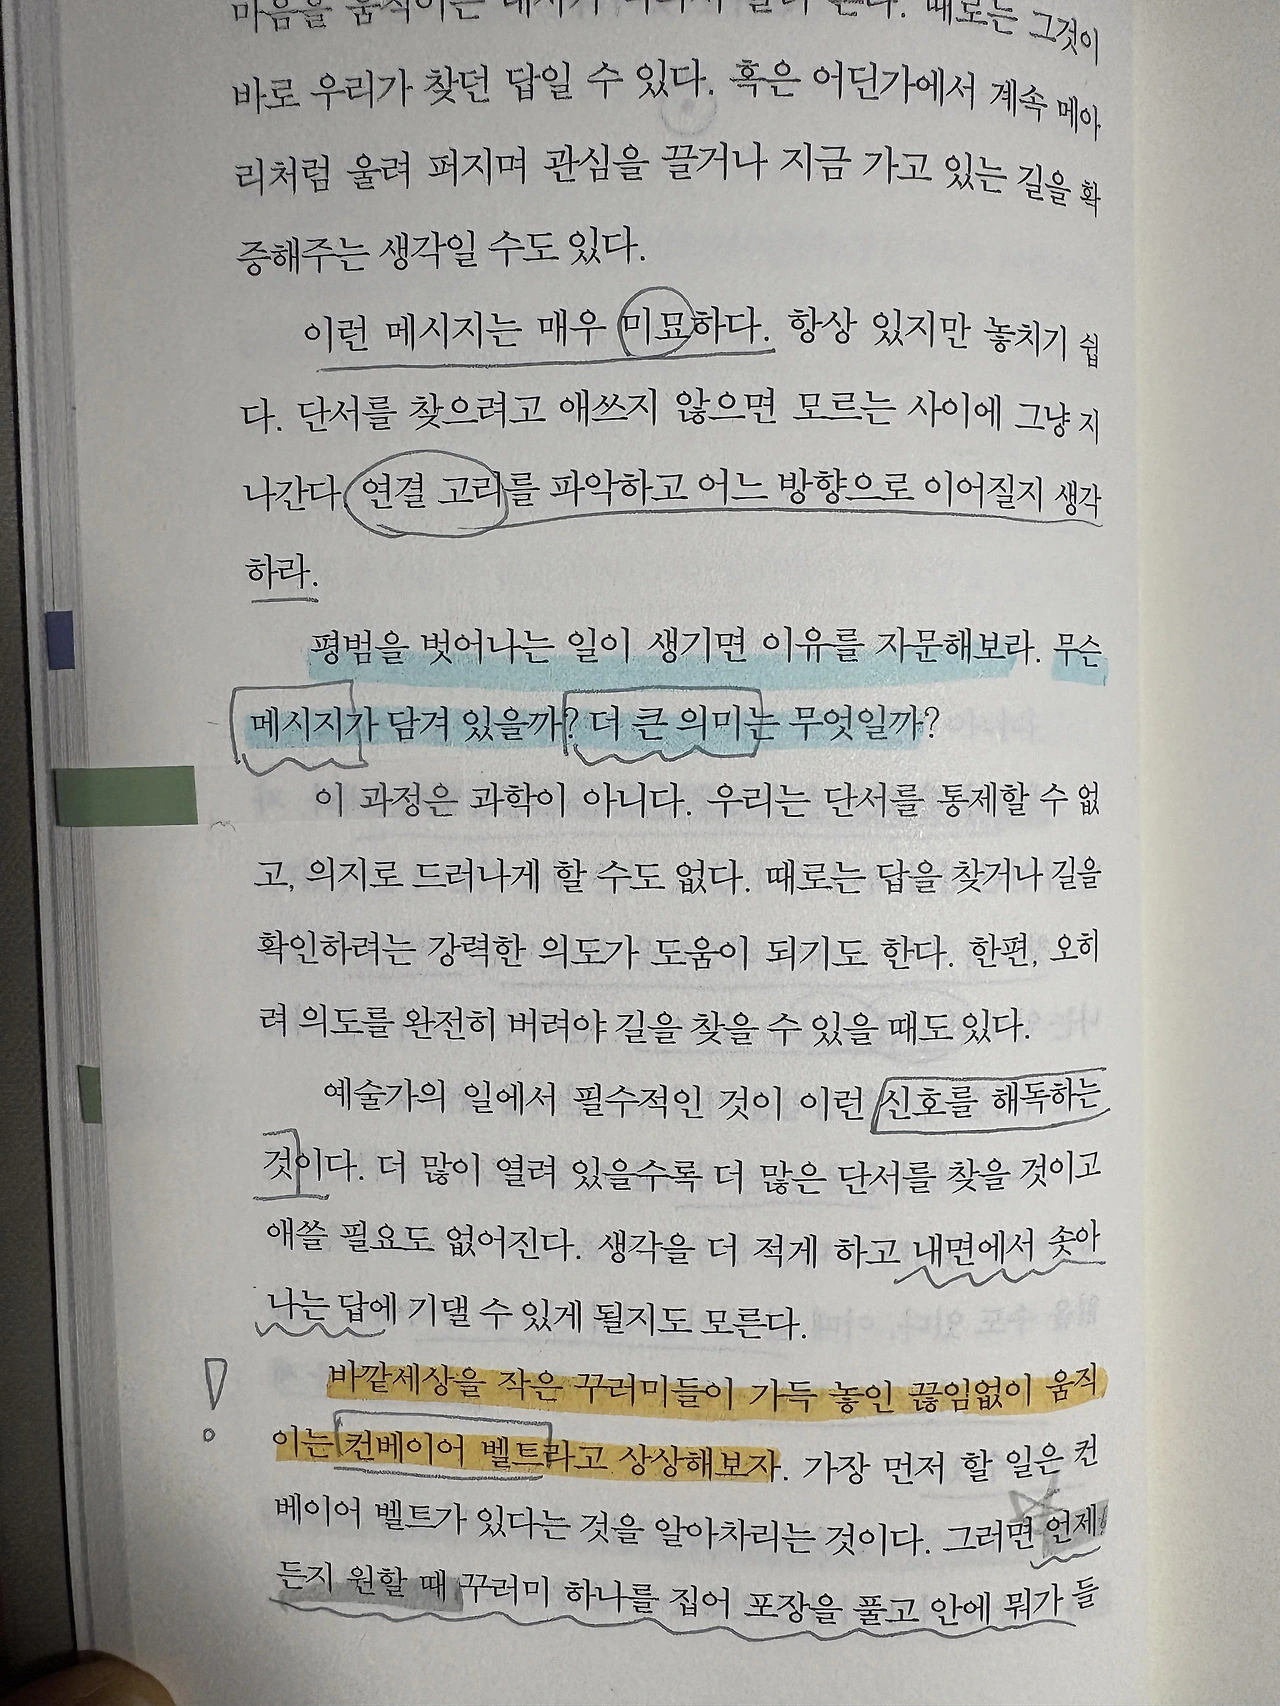 바로 우리가 찾던 답일 수 있다. 혹은 어딘가에서 계속 메아
리처럼 울려 퍼지며 관심을 끌거나 지금 가고 있는 길을 확
증해주는 생각일 수도 있다.
이런 메시지는 매우 미묘하다. 항상 있지만 놓치기 쉽
다. 단서를 찾으려고 애쓰지 않으면 모르는 사이에 그냥 지
나간다. 연결 고리를 파악하고 어느 방향으로 이어질지 생각
하라.
평범을 벗어나는 일이 생기면 이유를 자문해보라. 무슨
메시지가 담겨 있을까? 더 큰 의미는 무엇일까?
이 과정은 과학이 아니다. 우리는 단서를 통제할 수 없
고, 의지로 드러나게 할 수도 없다. 때로는 답을 찾거나 길을
확인하려는 강력한 의도가 도움이 되기도 한다. 한편, 오히
려 의도를 완전히 버려야 길을 찾을 수 있을 때도 있다.
예술가의 일에서 필수적인 것이 이런 신호를 해독하는
것이다. 더 많이 열려 있을수록 더 많은 단서를 찾을 것이고
애쓸 필요도 없어진다. 생각을 더 적게 하고 내면에서 솟아
나는 답에 기댈 수 있게 될지도 모른다.
바깥세상을 작은 꾸러미들이 가득 놓인 끊임없이 움직
이는 컨베이어 벨트라고 상상해보자. 가장 먼저 할 일은 컨
베이어 벨트가 있다는 것을 알아차리는 것이다. 그러면 언제
든지 원할 때 꾸러미 하나를 집어 포장을 풀고 안에 뭐가 들